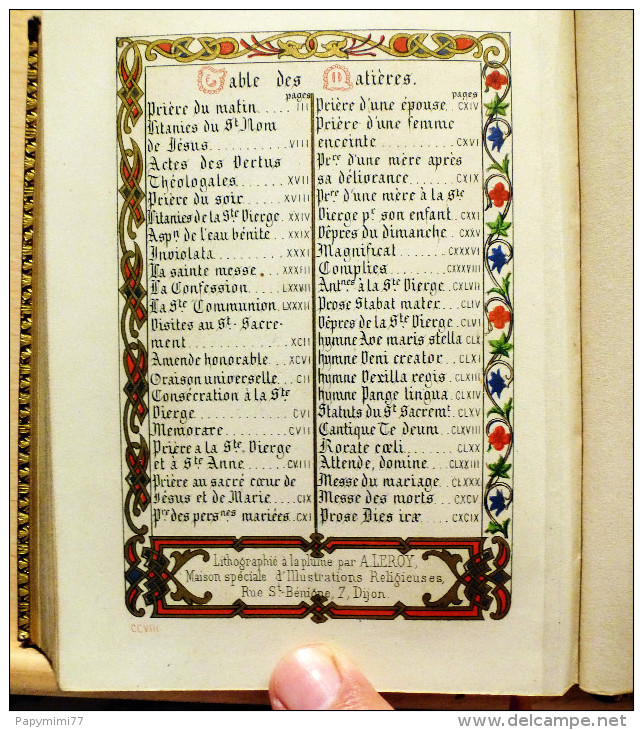 Table des Matières.
pages
Prière du matin.... III
Litanies du St Nom
de Jésus........ VIII
Actes des Vertus
Théologales........ XVII
Prière du soir.... XVIII
Litanies de la Ste Vierge. XXIV
Aspn de l'eau bénite.. XXIX
Inviolata......... XXXI
La sainte messe.... XXXIII
La Confession.... LXXVII
La Ste Communion. LXXXII
Visites au St. Sacre-
ment........... XCII
Amende honorable... XCVI
Oraison universelle.. CII
Consécration à la Ste
Vierge......... CVI
Memorare....... CVII
Prière a la Ste. Vierge
et à Ste Anne..... CVIII
Prière au sacré cœur de
Jésus et de Marie... CIX
Pre des persnes mariées. CXI
pages
Prière d'une épouse. CXIV
Prière d'une femme
enceinte........ CXVI
Prre d'un mère après
sa délivrance..... CXIX
Prre d'une mère à la Ste
Vierge pr son enfant.. CXXI
Vêpres du dimanche.. CXXV
Magnificat..... CXXXVI
Complies...... CXXXVIII
Antnes à la Ste Vierge. CXLVII
Prose Stabat mater... CLIV
Vêpres de la Ste Vierge.. CLVI
hymne Ave maris stella CLX
hymne Veni creator.. CLXI
hymne Vexilla regis. CLXIII
hymne Pange lingua. CLXIV
Statuts du St Sacremt. CLXV
Cantique Te deum.. CLXVIII
Rorate cœli...... CLXX
Attende, domine... CLXXIII
Messe du mariage. CLXXX
Messe des morts... CXCV
Prose Dies iræ.... CXCIX
Lithographié à la plume par A. LEROY,
Maison spéciale d'Illustrations Religieuses,
Rue St-Bénigne, 7, Dijon.
CCVIII
Papymimi77
www.delcampe.net